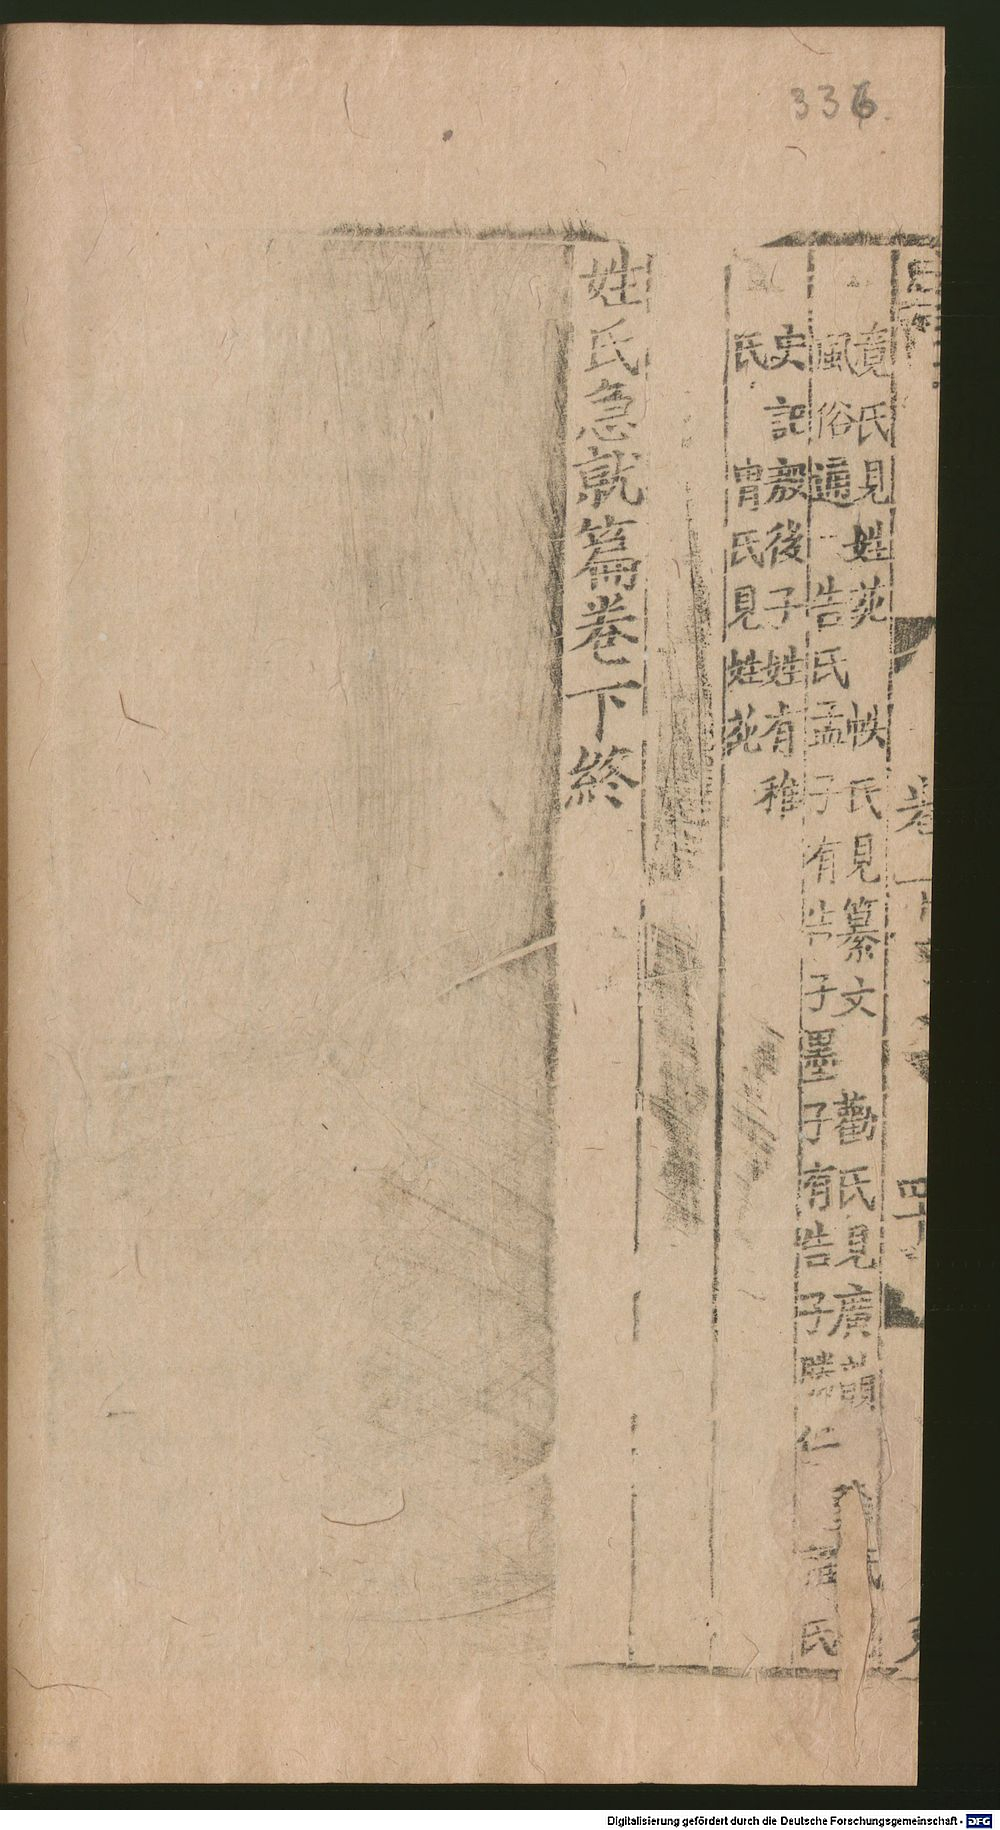 336.
竟氏見姓苑 帙氏見纂文 勸氏見廣韻 氏
風俗通 告氏孟子有告子墨子有告子勝仁 氏
史記殷後子姓有稚
氏 胄氏見姓苑
姓氏急就篇卷下終
卷下 四十
Digitalisierung gefördert durch die Deutsche Forschungsgemeinschaft - DFG